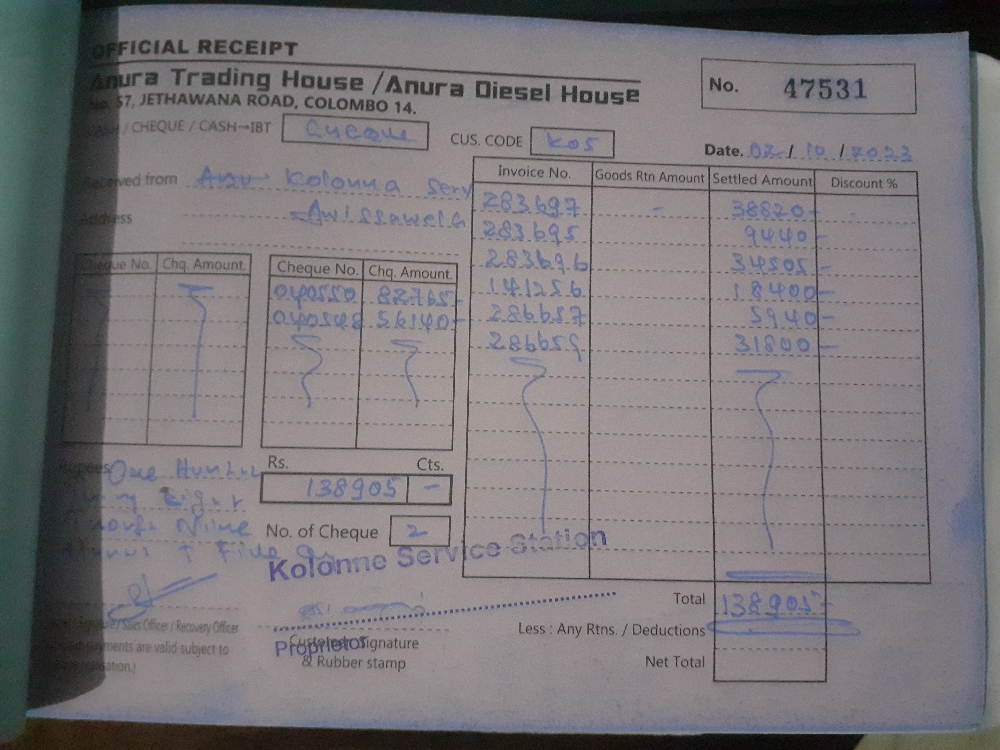 OFFICIAL RECEIPT
Anura Trading House / Anura Diesel House
No. 57, JETHAWANA ROAD, COLOMBO 14.
No. 47531
CASH / CHEQUE / CASH→IBT Cheque
CUS. CODE K05
Date. 02 / 10 / 2023
Received from Kolonna Serv
Address Awissawela
Invoice No. Goods Rtn Amount Settled Amount Discount %
283697 - 38820-
283695 9440-
283696 34505-
141256 18400-
286657 5940-
286659 31800-
Cheque No. Chq. Amount. Cheque No. Chq. Amount.
040550 82765-
040548 56140-
Rupees One Hun
Rs. Cts.
138905 -
Eight
Nine
No. of Cheque 2
Five
Kolonne Service Station
Total 138905-
Signature / Sales Officer / Recovery Officer
Less : Any Rtns. / Deductions
Customer Signature
Proprietor
& Rubber stamp
payments are valid subject to
Net Total